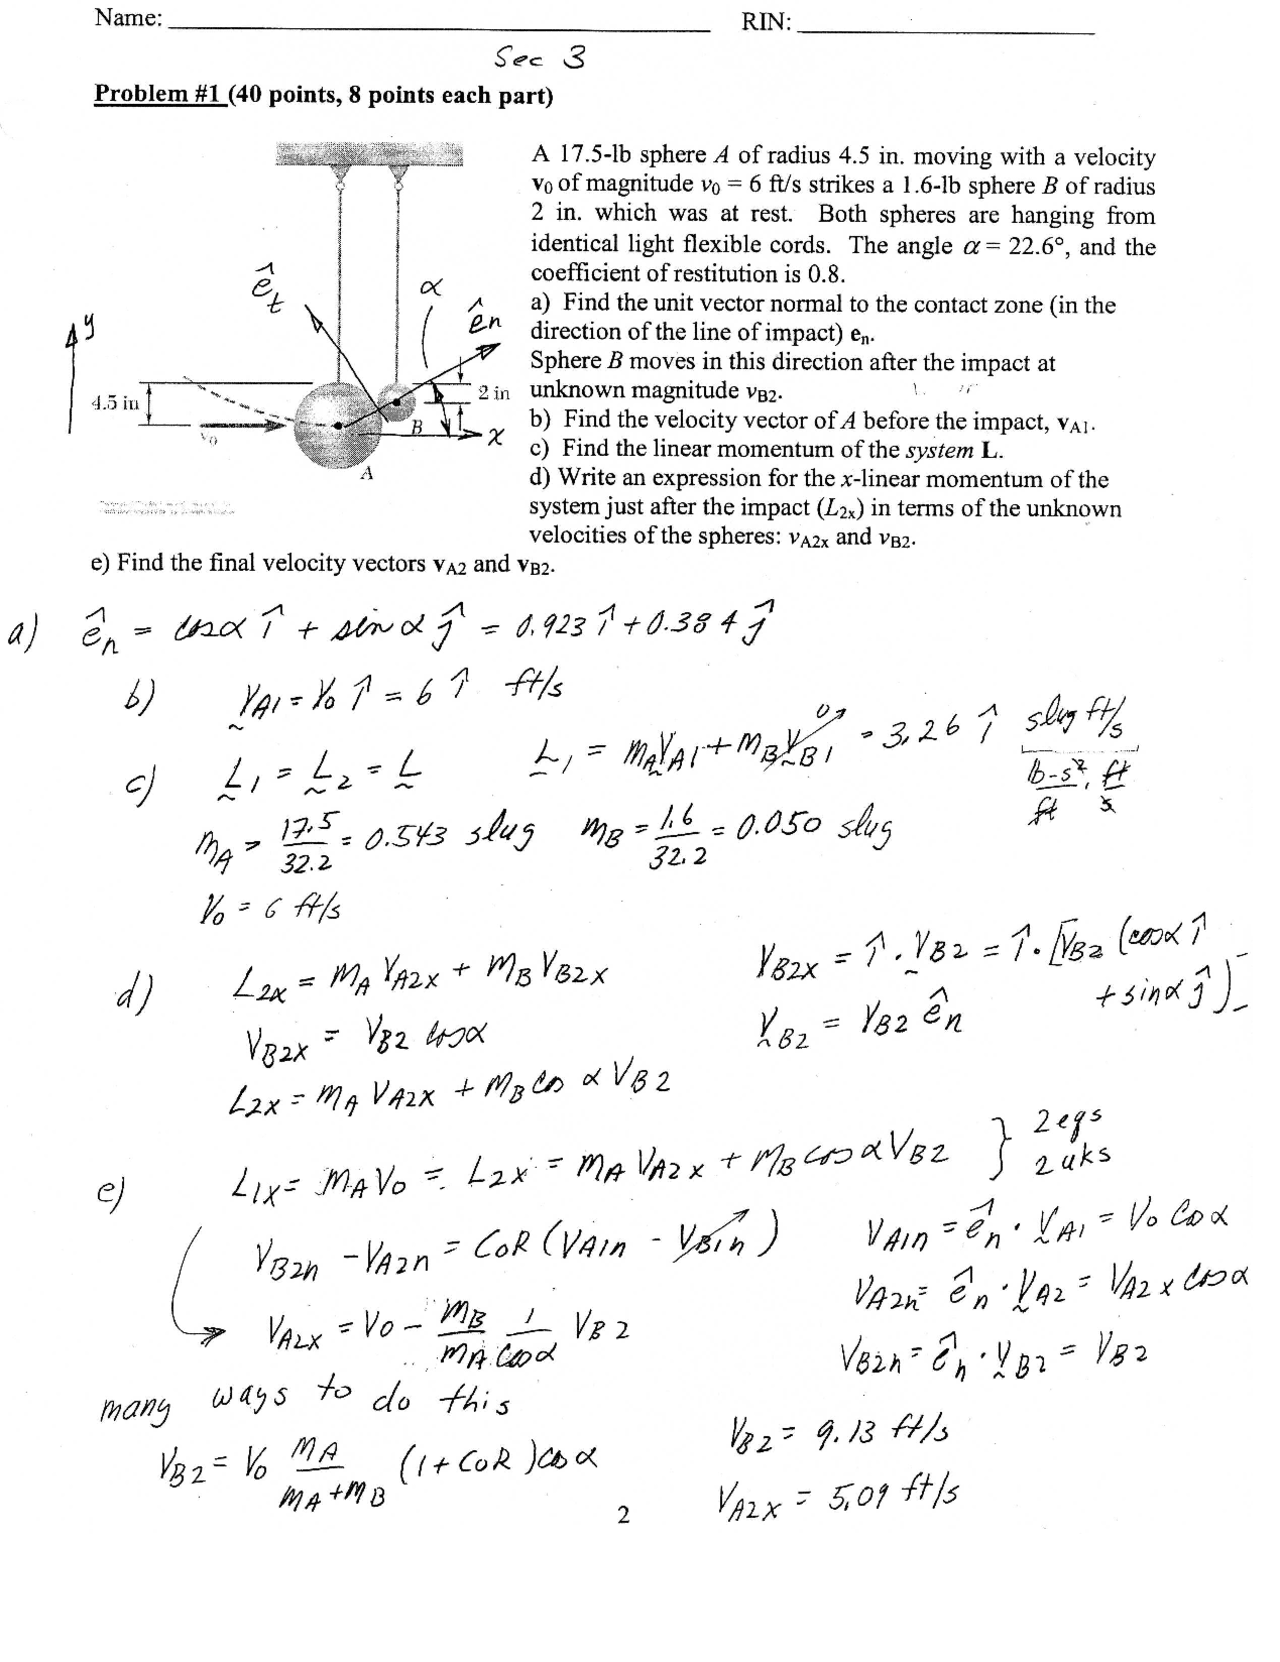 Name: RIN:
Sec 3
Problem #1 (40 points, 8 points each part)
A 17.5-lb sphere A of radius 4.5 in. moving with a velocity
v₀ of magnitude v₀ = 6 ft/s strikes a 1.6-lb sphere B of radius
2 in. which was at rest. Both spheres are hanging from
identical light flexible cords. The angle α = 22.6°, and the
coefficient of restitution is 0.8.
a) Find the unit vector normal to the contact zone (in the
direction of the line of impact) eₙ.
Sphere B moves in this direction after the impact at
unknown magnitude v_B2.
b) Find the velocity vector of A before the impact, v_A1.
c) Find the linear momentum of the system L.
d) Write an expression for the x-linear momentum of the
system just after the impact (L_2x) in terms of the unknown
velocities of the spheres: v_A2x and v_B2.
e) Find the final velocity vectors v_A2 and v_B2.
ê_t
α
ê_n
y
4.5 in
2 in
v₀
B
x
A
a) ê_n = cosα î + sinα ĵ = 0.923 î + 0.384 ĵ
b) V_A1 = V₀ î = 6 î ft/s
c) L_1 = L_2 = L L_1 = m_A V_A1 + m_B V_B1 0 = 3.26 î slug ft/s
lb-s²/ft · ft/s
m_A = 17.5/32.2 = 0.543 slug m_B = 1.6/32.2 = 0.050 slug
V₀ = 6 ft/s
d) L_2x = m_A V_A2x + m_B V_B2x V_B2x = î · V_B2 = î · [V_B2 (cosα î + sinα ĵ)]
V_B2x = V_B2 cosα V_B2 = V_B2 ê_n
L_2x = m_A V_A2x + m_B cos α V_B2
e) L_1x = m_A V₀ = L_2x = m_A V_A2x + m_B cos α V_B2 } 2 eqs 2 uks
V_B2n - V_A2n = CoR (V_A1n - V_B1n) V_A1n = ê_n · V_A1 = V₀ cosα
V_A2n = ê_n · V_A2 = V_A2x cosα
V_A2x = V₀ - m_B/m_A 1/cosα V_B2 V_B2n = ê_n · V_B2 = V_B2
many ways to do this
V_B2 = V₀ m_A/(m_A + m_B) (1 + CoR) cos α V_B2 = 9.13 ft/s
V_A2x = 5.09 ft/s
2